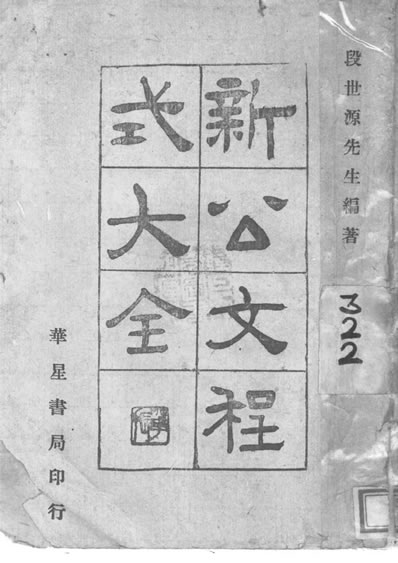 段世源先生編著
新公文程
式大全
華星書局印行
322